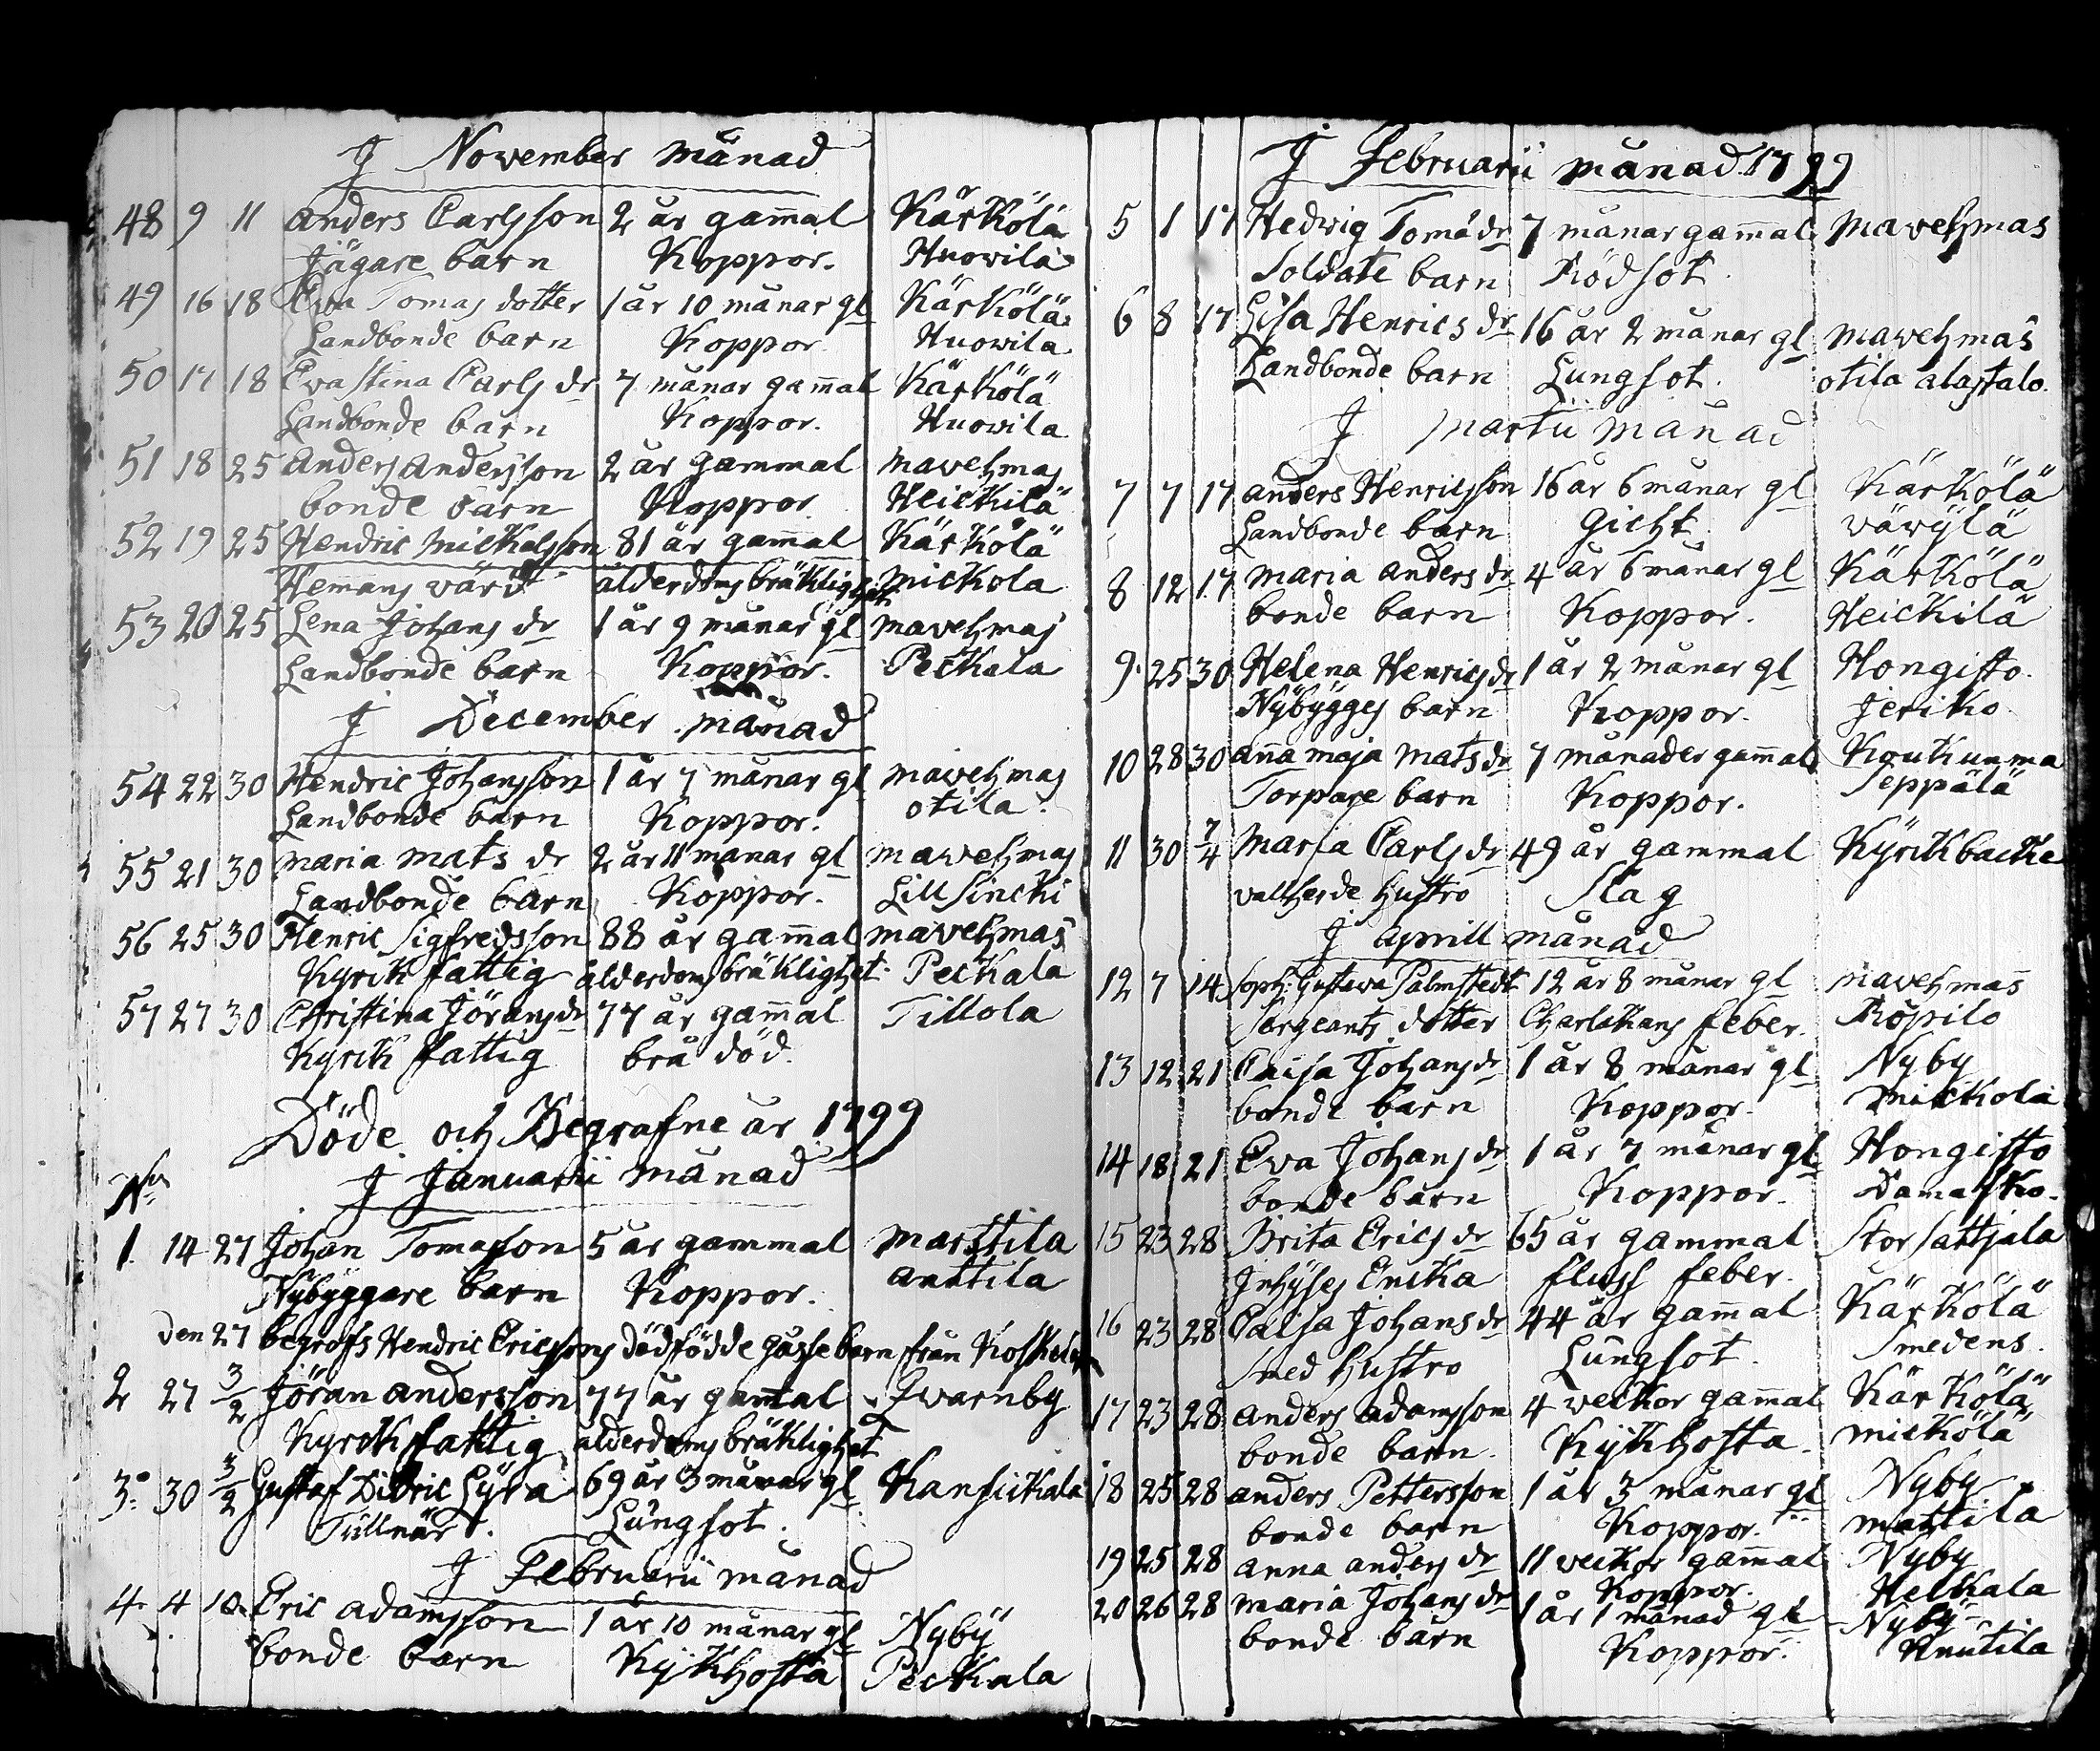 I November månad
48 9 11 Anders Carlsson 2 år gam̄al Kärkölä
Jägare barn Koppor. Huowila
49 16 18 Ewa Tomas dotter 1 år 10 månar gl Kärkölä
Landbonde barn Koppor. Huowila
50 17 18 Ewa Stina Carls dr 7 månar gam̄al Kärkölä
Landbonde barn Koppor. Huowila
51 18 25 Anders Andersson 2 år gammal Mavehmas
bonde barn Koppor Heickilä
52 19 25 Hendric Mickelsson 81 år gam̄al Kärkölä
Hemmans wärd ålderdoms bräklighet Mickola
53 20 25 Lena Johans dr 1 år 9 månar gl Mavehmas
Landbonde barn Koppor. Peckala
I December månad
54 22 30 Hendric Johansson 1 år 7 månar gl Mavehmas
Landbonde barn Koppor. Otila
55 21 30 Maria Mats dr 2 år 11 månar gl Mavehmas
Landbonde barn Koppor. Lill Sincki
56 25 30 Henric Sigfredsson 88 år gam̄al Mavehmas
Kyrck fattig ålderdoms bräklighet. Peckala
57 27 30 Christina Jöransdr 77 år gam̄al Tillola
Kyrck fattig brå död.
Döde och Begrafne år 1799
I Januarii månad
No
1. 14 27 Johan Tomasson 5 år gammal Marttila
Nybyggare barn Koppor. Anttila
den 27 begrofs Hendric Ericssons dödfödde gosse barn från Koskela
2 27 3/2 Jöran Andersson 77 år gam̄al Qwarnby
Kyrck fattig ålderdoms bräklighet
3. 30 3/2 Gustaf Didric Lyra 69 år 3 månar gl Kansickala
Tullnär. Lungsot.
I Februarii månad
4. 4 10. Eric Adamsson 1 år 10 månar gl Nyby
bonde barn Kijkhosta Peckala
I Februarii månad 1799
5 1 17 Hedwig Tomæ dr 7 månar gam̄al Mavehmas
Soldate barn Rödsot.
6 8 17 Lisa Henrics dr 16 år 2 månar gl Mavehmas
Landbonde barn Lungsot. Otila Alastalo.
I Martii månad
7 7 17 Anders Henricsson 16 år 6 månar gl Kärkölä
Landbonde barn Gicht. Wäwylä
8 12 17 Maria Anders dr 4 år 6 månar gl Kärkölä
bonde barn Koppor. Heickilä
9. 25 30 Helena Henricsdr 1 år 2 månar gl Hongisto.
Nybygges barn Koppor. Jeriko
10 28 30 Anna Maja Mats dr 7 månader gam̄al Koukunma
Torpare barn Koppor. Seppälä
11 30 7/4 Maria Carls dr 49 år gammal Kyrckbacke
vallherde hustro Slag
I Aprill månad
12 7 14 Soph. Gustava Palmstedt 12 år 8 månar gl Mavehmas
Sergeants dotter Charlakans feber. Röpilo
13 12 21 Caisa Johans dr 1 år 8 månar gl Nyby
bonde barn Koppor. Mickola
14 18 21 Ewa Johans dr 1 år 7 månar gl Hongisto
bonde barn Koppor. Damasko.
15 23 28 Brita Erics dr 65 år gammal Stor Sattjala
Inhyses Encka fluss feber.
16 23 28 Caisa Johans dr 44 år gam̄al Kärkölä
Smed hustro Lungsot. Smedens.
17 23 28 Anders Adamsson 4 weckor gam̄al Kärkölä
bonde barn. Kijkhosta. Mickölä
18 25 28 Anders Pettersson 1 år 3 månar gl Nyby
bonde barn Koppor. Mattila
19 25 28 Anna Anders dr 11 weckor gam̄al Nyby
Koppor. Heckala
20 26 28 Maria Johans dr 1 år 1 månad gl Nyby
bonde barn Koppor. Knutila